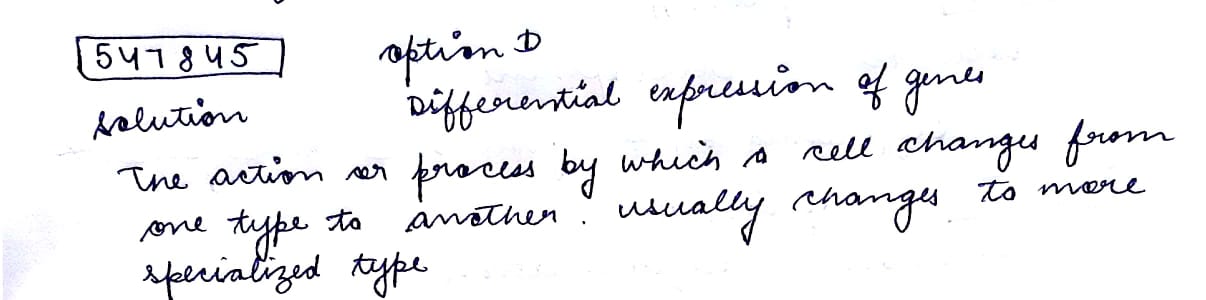 547845 option D
solution Differential expression of genes
The action or process by which a cell changes from
one type to another. usually changes to more
specialized type